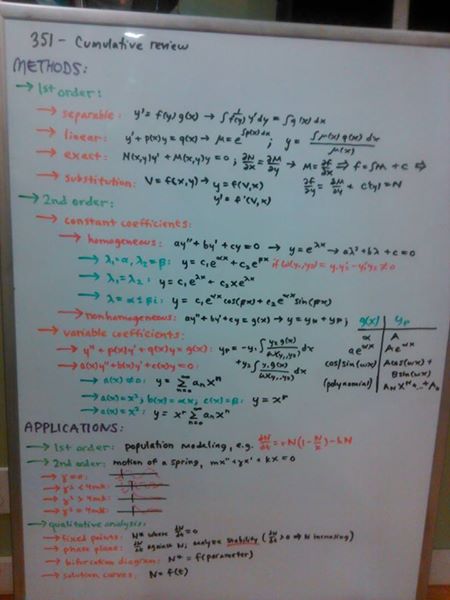 351 - Cumulative review
METHODS:
→ 1st order:
→ separable: y' = f(y) g(x) → ∫ 1/f(y) y' dy = ∫ g(x) dx
→ linear: y' + p(x)y = q(x) → μ = e^∫p(x)dx ; y = ∫μ(x) q(x) dx / μ(x)
→ exact: N(x,y)y' + M(x,y)y = 0 ; ∂N/∂x = ∂M/∂y → M = ∂f/∂x ⇒ f = ∫M + c ⇒
→ substitution: V = f(x,y) → y = f(V,x) ∂f/∂y = ∂M/∂y + c'(y) = N
y' = f'(V,x)
→ 2nd order:
→ constant coefficients:
→ homogeneous: ay'' + by' + cy = 0 → y = e^λx → aλ² + bλ + c = 0
→ λ₁ = α, λ₂ = β: y = c₁e^αx + c₂e^βx if ω(y₁,y₂) = y₁y₂' - y₁'y₂ ≠ 0
→ λ₁ = λ₂: y = c₁e^λx + c₂xe^λx
→ λ = α ± βi: y = c₁e^αx cos(βx) + c₂e^αx sin(βx)
→ nonhomogeneous: ay'' + by' + cy = g(x) → y = yH + yP; g(x) yP
→ variable coefficients: α A
→ y'' + p(x)y' + q(x)y = g(x): yP = -y₁∫ y₂g(x)/ω(y₁,y₂) dx ae^ωx Ae^ωx
+ y₂∫ y₁g(x)/ω(y₁,y₂) dx cos/sin(ωx) Acos(ωx) +
→ a(x)y'' + b(x)y' + c(x)y = 0: Bsin(ωx)
→ a(x) ≠ 0: y = ∞Σn=0 aₙxⁿ (polynomial) AₙXⁿ + ... + A₀
→ a(x) = x²; b(x) = αx; c(x) = β: y = x^r
→ a(x) = x²: y = x^r ∞Σn=0 aₙxⁿ
APPLICATIONS:
→ 1st order: population modeling, e.g. dN/dt = rN(1 - N/K) - hN
→ 2nd order: motion of a spring, mx'' + γx' + kx = 0
→ γ = 0:
→ γ² < 4mk:
→ γ² > 4mk:
→ γ² = 4mk:
→ qualitative analysis:
→ fixed points: N* where dN/dt = 0
→ phase plane: dN/dt against N; analyze stability (dN/dt > 0 ⇒ N increasing)
→ bifurcation diagram: N* = f(parameter)
→ solution curves: N = f(t)